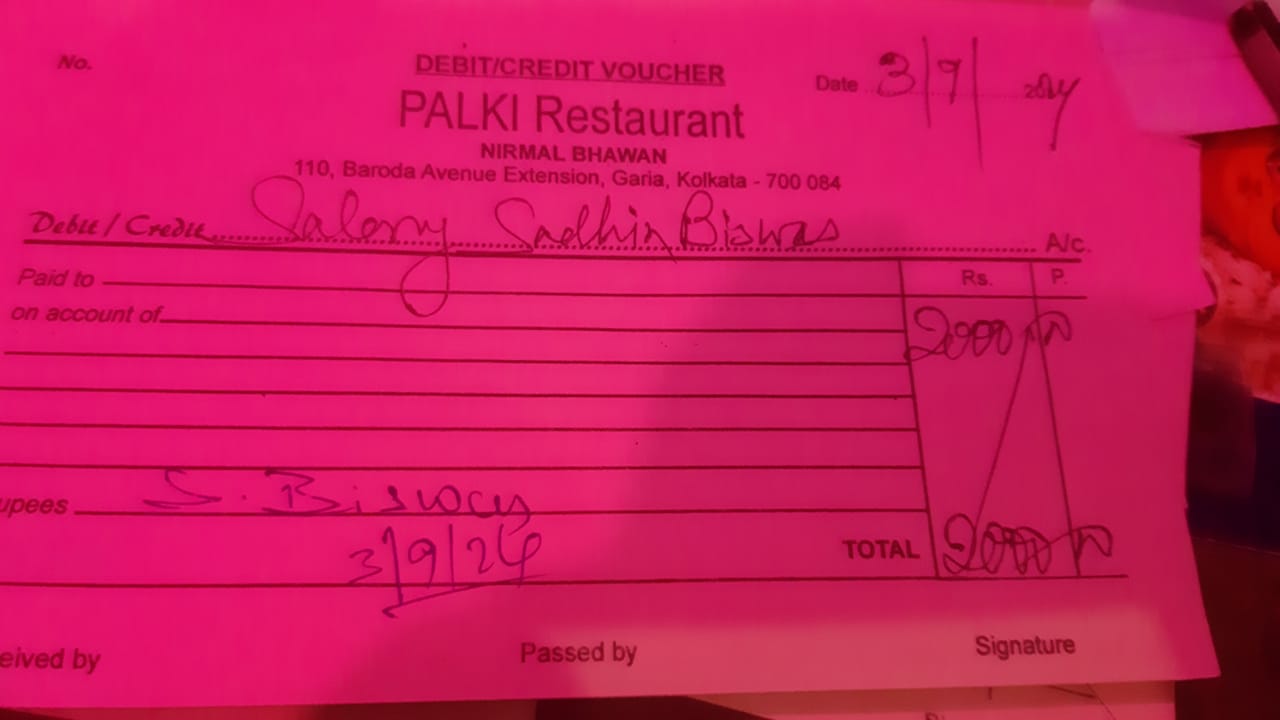 No.
DEBIT/CREDIT VOUCHER
Date 3/9/2024
PALKI Restaurant
NIRMAL BHAWAN
110, Baroda Avenue Extension, Garia, Kolkata - 700 084
Debit / Credit Salary Sadhin Biswas A/c.
Paid to Rs. P.
on account of 2000 00
upees S. Biswas
3/9/24
TOTAL 2000 00
eived by Passed by Signature